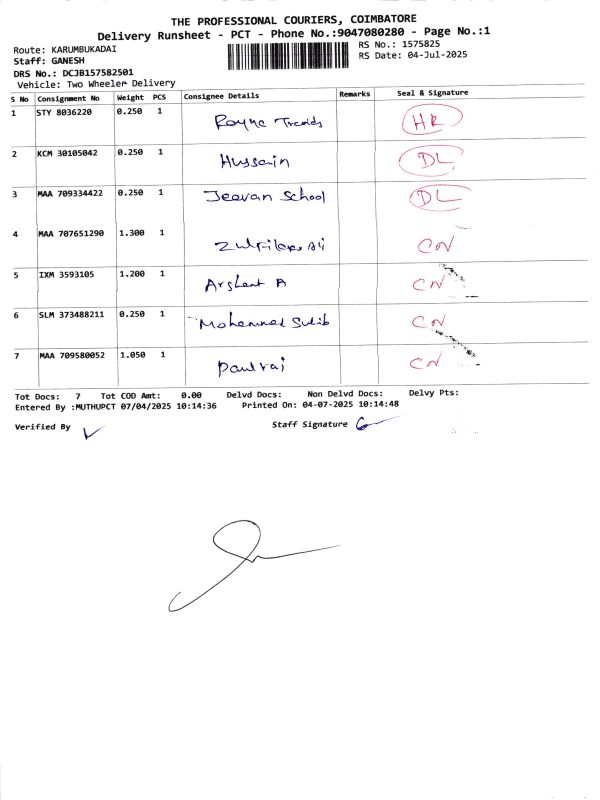 THE PROFESSIONAL COURIERS, COIMBATORE
Delivery Runsheet - PCT - Phone No.:9047080280 - Page No.:1
Route: KARUMBUKADAI RS No.: 1575825
Staff: GANESH RS Date: 04-Jul-2025
DRS No.: DCJB157582501
Vehicle: Two Wheeler Delivery
S No Consignment No Weight PCS Consignee Details Remarks Seal & Signature
1 STY 8036220 0.250 1 Royne Trends HR
2 KCM 30105042 0.250 1 Hussain DL
3 MAA 709334422 0.250 1 Jeevan School DL
4 MAA 707651290 1.300 1 CN
5 IXM 3593105 1.200 1 CN
6 SLM 373488211 0.250 1 Mohammed CN
7 MAA 709580052 1.050 1 Paulraj CN
Tot Docs: 7 Tot COD Amt: 0.00 Delvd Docs: Non Delvd Docs: Delvy Pts:
Entered By :MUTHUPCT 07/04/2025 10:14:36 Printed On: 04-07-2025 10:14:48
Verified By Staff Signature